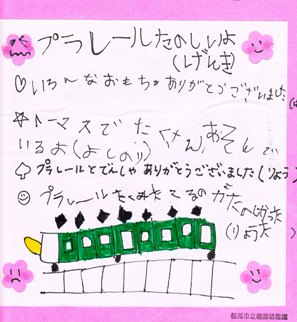 プラレールたのしいよ
(しげんき)
♡いろんなおもちゃありがとうございました
☆トーマスでたくさんあそんで
いるよ(よしのり)
♤プラレールとでんしゃありがとうございました(りょう
☺プラレールをくみたてるのがたのしかった
(りょうた)
相馬市立磯部幼稚園